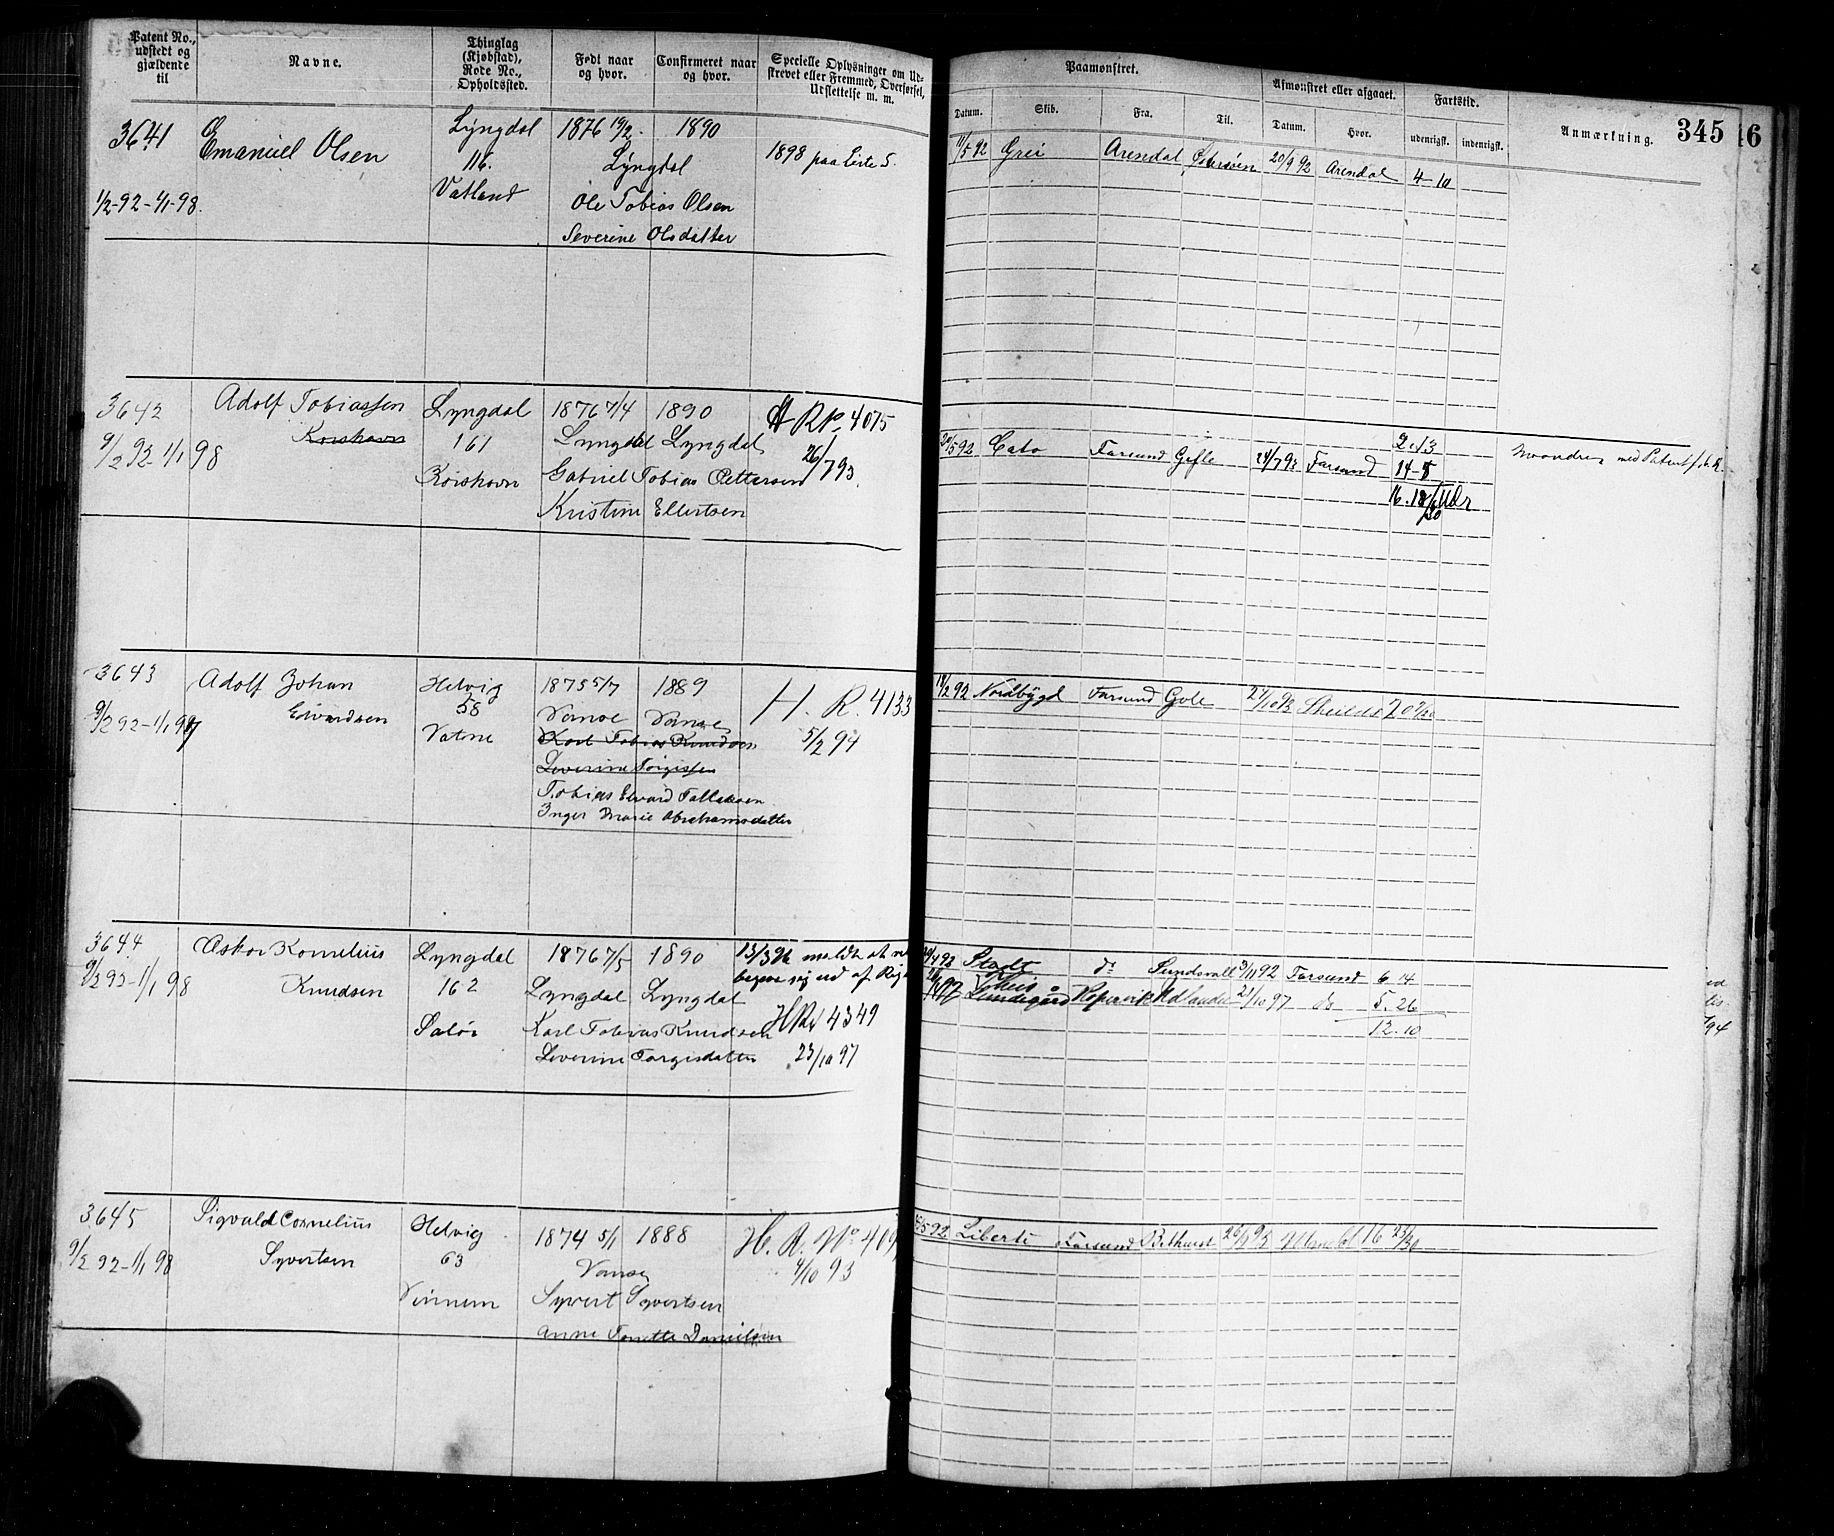 Patent No., udstedt og gjældende til
Navne.
Thinglag (Kjøbstad), Rode No., Opholdssted.
Født naar og hvor.
Confirmeret naar og hvor.
Specielle Oplysninger om Udstrevet eller Fremmed, Overførsel, Udslettelse m. m.
Paamønstret.
Datum.
Skib.
Fra.
Til.
Afmønstret eller afgaaet.
Datum.
Hvor.
Fartstid.
udenrigst.
indenrigst.
Anmærkning.
345
46
3641 Emanuel Olsen Lyngdal 1876 19/2 1890
116. Lyngdal 1898 paa Liste S.
1/2-92-1/1-98. Vatland Ole Tobias Olsen
Severine Olsdatter
11/5 92 Grei Arendal Østersøen 20/9 92 Arendal 4-10
3642 Adolf Tobiassen Lyngdal 1876 7/4 1890 H R No 4075
Korshavn 161 Lyngdal Lyngdal 26/7 93.
9/2 92-1/1 98 Korshavn Gabriel Tobias Pettersen
Kristine Ellertsen
20/5 92 Cato Farsund Gefle 24/7 93 Farsund 2.13
14-5
med Patent
3643 Adolf Johan Helvig 1875 5/7 1889 H. R. 4133
Edvardsen 58 Vanse Vanse 5/2 94
9/2 92-1/1 97 Vatne Karl Tobias Knudsen
Severine Torgissen
Tobias Edvard Tallaksen
Inger Marie Abrahamsdatter
18/2 92 Nordbygd Farsund Gole
3644 Oskar Kornelius Lyngdal 1876 7/5 1890 13/3 96 meldt at ville
Knudsen 162 Lyngdal Lyngdal begive sig ud af Riget
9/2 92-1/1 98 Saløi Karl Tobias Knudsen H R 4349
Severine Torgisdatter 23/10 97
Stadt do Sundsvall 3/11 92 Farsund 6 14
Lundegård Kopervik 21/10 97 do 5. 26
12. 10
3645 Sigvald Cornelius Helvig 1874 5/1 1888 H. R. No 409
Syvertsen 63 Vanse 4/10 93
9/2 92-1/1 98 Vinnem Syvert Syvertsen
Anne Tonette Danielsen
92 Liberti Farsund Bathurst 16 23/30